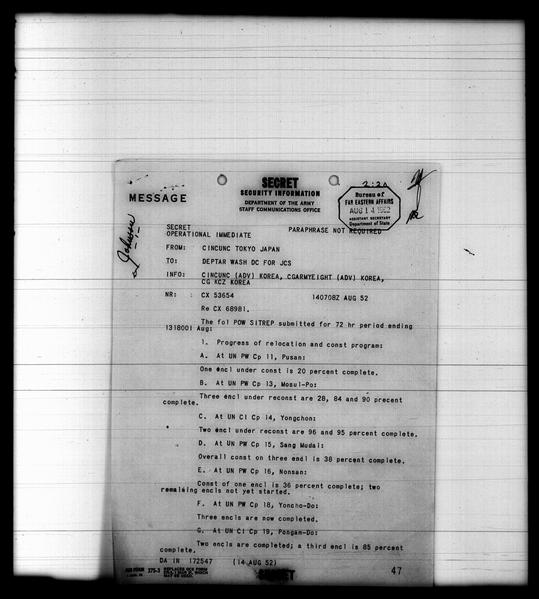 SECRET
SECURITY INFORMATION
MESSAGE
DEPARTMENT OF THE ARMY
STAFF COMMUNICATIONS OFFICE
Bureau of
FAR EASTERN AFFAIRS
AUG 14 1952
ASSISTANT SECRETARY
Department of State
Johnson
SECRET PARAPHRASE NOT REQUIRED
OPERATIONAL IMMEDIATE
FROM: CINCUNC TOKYO JAPAN
TO: DEPTAR WASH DC FOR JCS
INFO: CINCUNC (ADV) KOREA, CGARMYEIGHT (ADV) KOREA,
CG KCZ KOREA
NR: CX 53654 140708Z AUG 52
Re CX 68981.
The fol POW SITREP submitted for 72 hr period ending
131800I Aug:
1. Progress of relocation and const program:
A. At UN PW Cp 11, Pusan:
One encl under const is 20 percent complete.
B. At UN PW Cp 13, Mosul-Po:
Three encl under reconst are 28, 84 and 90 precent
complete.
C. At UN CI Cp 14, Yongchon:
Two encl under reconst are 96 and 95 percent complete.
D. At UN PW Cp 15, Sang Mudai:
Overall const on three encl is 38 percent complete.
E. At UN PW Cp 16, Nonsan:
Const of one encl is 36 percent complete; two
remaining encls not yet started.
F. At UN PW Cp 18, Yoncho-Do:
Three encls are now completed.
G. At UN CI Cp 19, Pongam-Do:
Two encls are completed; a third encl is 85 percent
complete.
DA IN 172547 (14 AUG 52)
375-3
SECRET
47